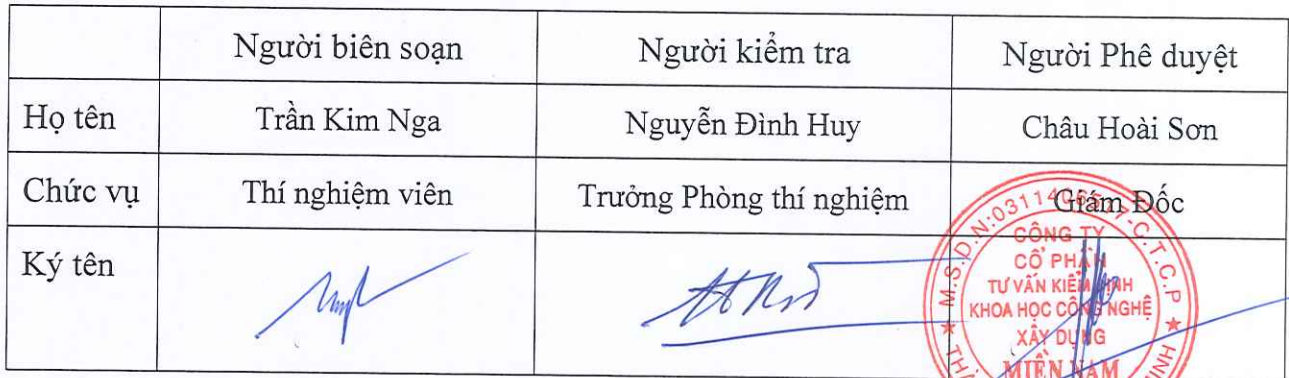 Người biên soạn Người kiểm tra Người Phê duyệt
Họ tên Trần Kim Nga Nguyễn Đình Huy Châu Hoài Sơn
Chức vụ Thí nghiệm viên Trưởng Phòng thí nghiệm Giám Đốc
Ký tên
CÔNG TY
CỔ PHẦN
TƯ VẤN KIỂM ĐỊNH
KHOA HỌC CÔNG NGHỆ
XÂY DỰNG
MIỀN NAM